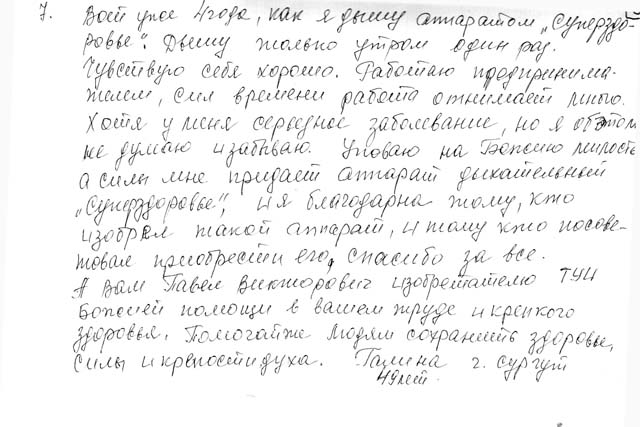 7. Вот уже 4 года, как я дышу аппаратом „Суперздо-
ровье". Дышу только утром один раз.
Чувствую себя хорошо. Работаю предпринима-
телем, сил времени работа отнимает много.
Хотя у меня серьёзное заболевание, но я об этом
не думаю и забываю. Уповаю на Божью милость
а силы мне придаёт аппарат дыхательный
„Суперздоровье", и я благодарна тому, кто
изобрел такой аппарат, и тому кто посове-
товал приобрести его, спасибо за все.
А Вам Павел Викторович изобретателю ТУИ
Божией помощи в вашем труде и крепкого
здоровья. Помогайте людям сохранить здоровье,
силы и крепости духа. Галина г. Сургут
49 лет.